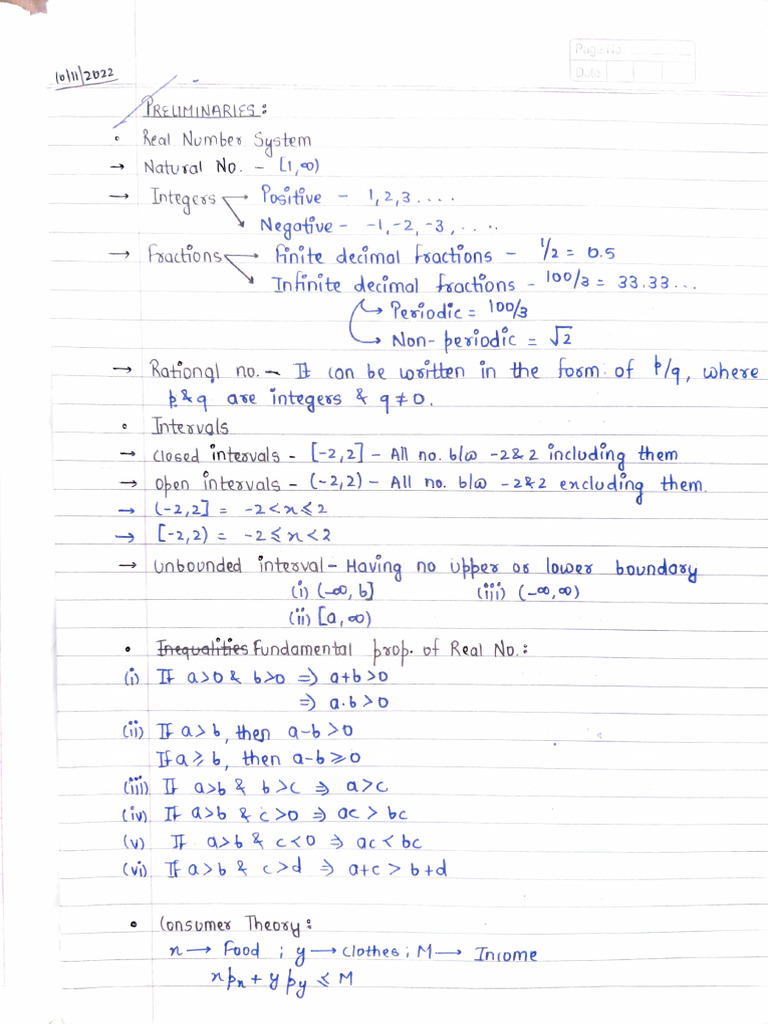 Page No.
Date
10/11/2022
PRELIMINARIES:
• Real Number System
→ Natural No. - [1,∞)
→ Integers → Positive - 1,2,3....
→ Negative - -1,-2,-3,....
→ Fractions → Finite decimal fractions - 1/2 = 0.5
→ Infinite decimal fractions - 100/3 = 33.33...
→ Periodic = 100/3
→ Non-periodic = √2
→ Rational no. - It can be written in the form of p/q, where
p & q are integers & q ≠ 0.
• Intervals
→ closed intervals - [-2,2] - All no. b/w -2&2 including them
→ open intervals - (-2,2) - All no. b/w -2&2 excluding them.
→ (-2,2] = -2<x⩽2
→ [-2,2) = -2⩽x<2
→ Unbounded interval - Having no upper or lower boundary
(i) (-∞, b] (iii) (-∞,∞)
(ii) [a,∞)
• Inequalities Fundamental prop. of Real No.:
(i) If a>0 & b>0 ⇒ a+b>0
⇒ a·b>0
(ii) If a>b, then a-b>0
If a⩾b, then a-b⩾0
(iii) If a>b & b>c ⇒ a>c
(iv) If a>b & c>0 ⇒ ac > bc
(v) If a>b & c<0 ⇒ ac<bc
(vi) If a>b & c>d ⇒ a+c > b+d
• Consumer Theory:
x → Food ; y → clothes ; M → Income
xpx + ypy ⩽ M